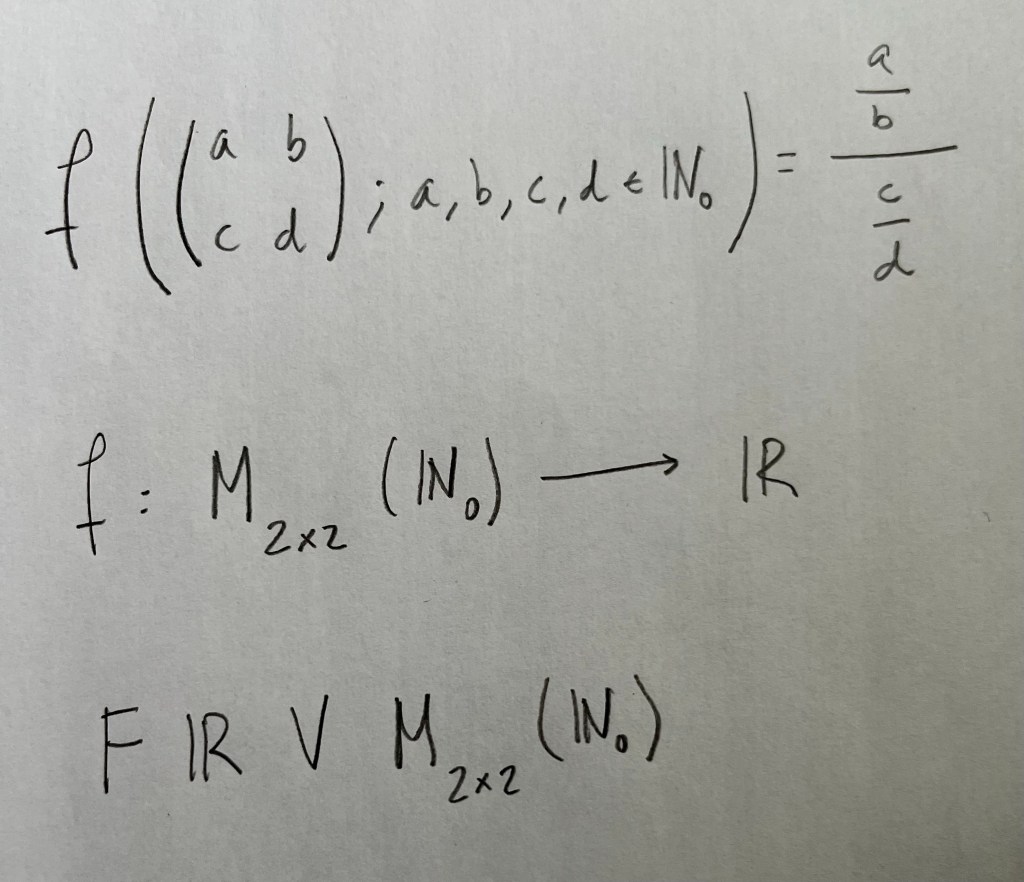 f ((a b c d); a, b, c, d ∈ ℕ₀) = a/b / c/d
f : M₂ₓ₂ (ℕ₀) ⟶ ℝ
F ℝ V M₂ₓ₂ (ℕ₀)